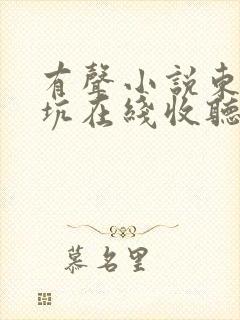 有聲小説東
坑在綫收聽
慕名里